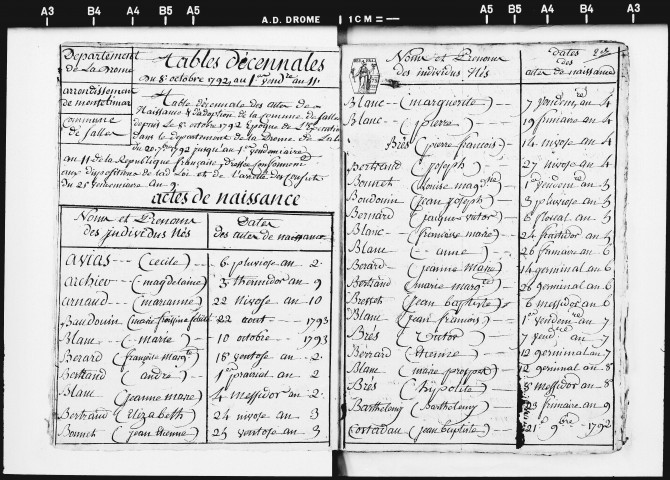 A3 B4 A4 B5 A5 A.D. DROME 1CM = A5 B5 A4 B4 A3
Departement
de La Drome
arrondissement
de montelimar
Commune
de Salles
Tables décennales
du 8e octobre 1792, au 1er vendre au 11.
Table décennale des actes de
Naissance & d'adoption de la comune de Salles
depuis Le 8e octobre 1792 Epoque de
dans le Departement de la Drome de La Loi
du 20 7bre 1792 jusqu'au 1er vendemiaire
an 11 de la Republique française, Dressée conformement
aux dispositions de lad Loi et de l'arrêté des consuls
du 25 vendemiaire an 9.
actes de naissance
Noms et Prenoms
des individus Nés
Dates
des actes de naissance
avias --- (cecile) -- 6 pluviose an - 2
archier -- (magdelaine) 3 thermidor an - 9
arnaud --- (marianne) 22 Nivose an - 10
Baudouin (marie 22 aout - 1793
Blanc --- (marie) -- 10 octobre -- 1793
Berard (françois 18 ventose an - 2
Bertrand (andré) -- 1er prairial an - 2
Blanc -- (jeanne marie) 4 Messidor an - 2
Bertrand (Elizabeth) 24 nivose an - 3
Bonnet (jean etienne) 24 ventose an - 3
Noms et Prenoms
des individus Nés
dates
des
actes de naissance
Blanc - (marguerite) - 7 vendem re an 4
Blanc - (pierre) 19 frimaire an 4
Brès (pierre françois) 14 nivose an 4
Bertrand (joseph) - 27 nivose an 4
Bonnet (Louise 1er vendem re an 5
Boudouin (jean joseph) - 3 pluviose an 5
Bernard (jaques victor) 8 floreal an 5
Blanc - (françoise marie) - 24 fructidor an 5
Blanc - (anne) - 26 frimaire an 6
Berard (jeanne marie) 14 germinal an 6
Bertrand (marie margte) - 26 germinal an 6
Bresset (jean baptiste) - 6 messidor an 6
Blanc (jean françois) - 1er vendem re an 7
Brès (victor) - 7 an 7
Bérrard (therinze) - 12 germinal an 7
Blanc (marie prospere) 12 germinal an 8
Brès (hypolite) - 8 messidor an 8
Barthelemy (Barthelemy) 23 frimaire an 9
Corterdau (jean baptiste) 21 9bre 1792